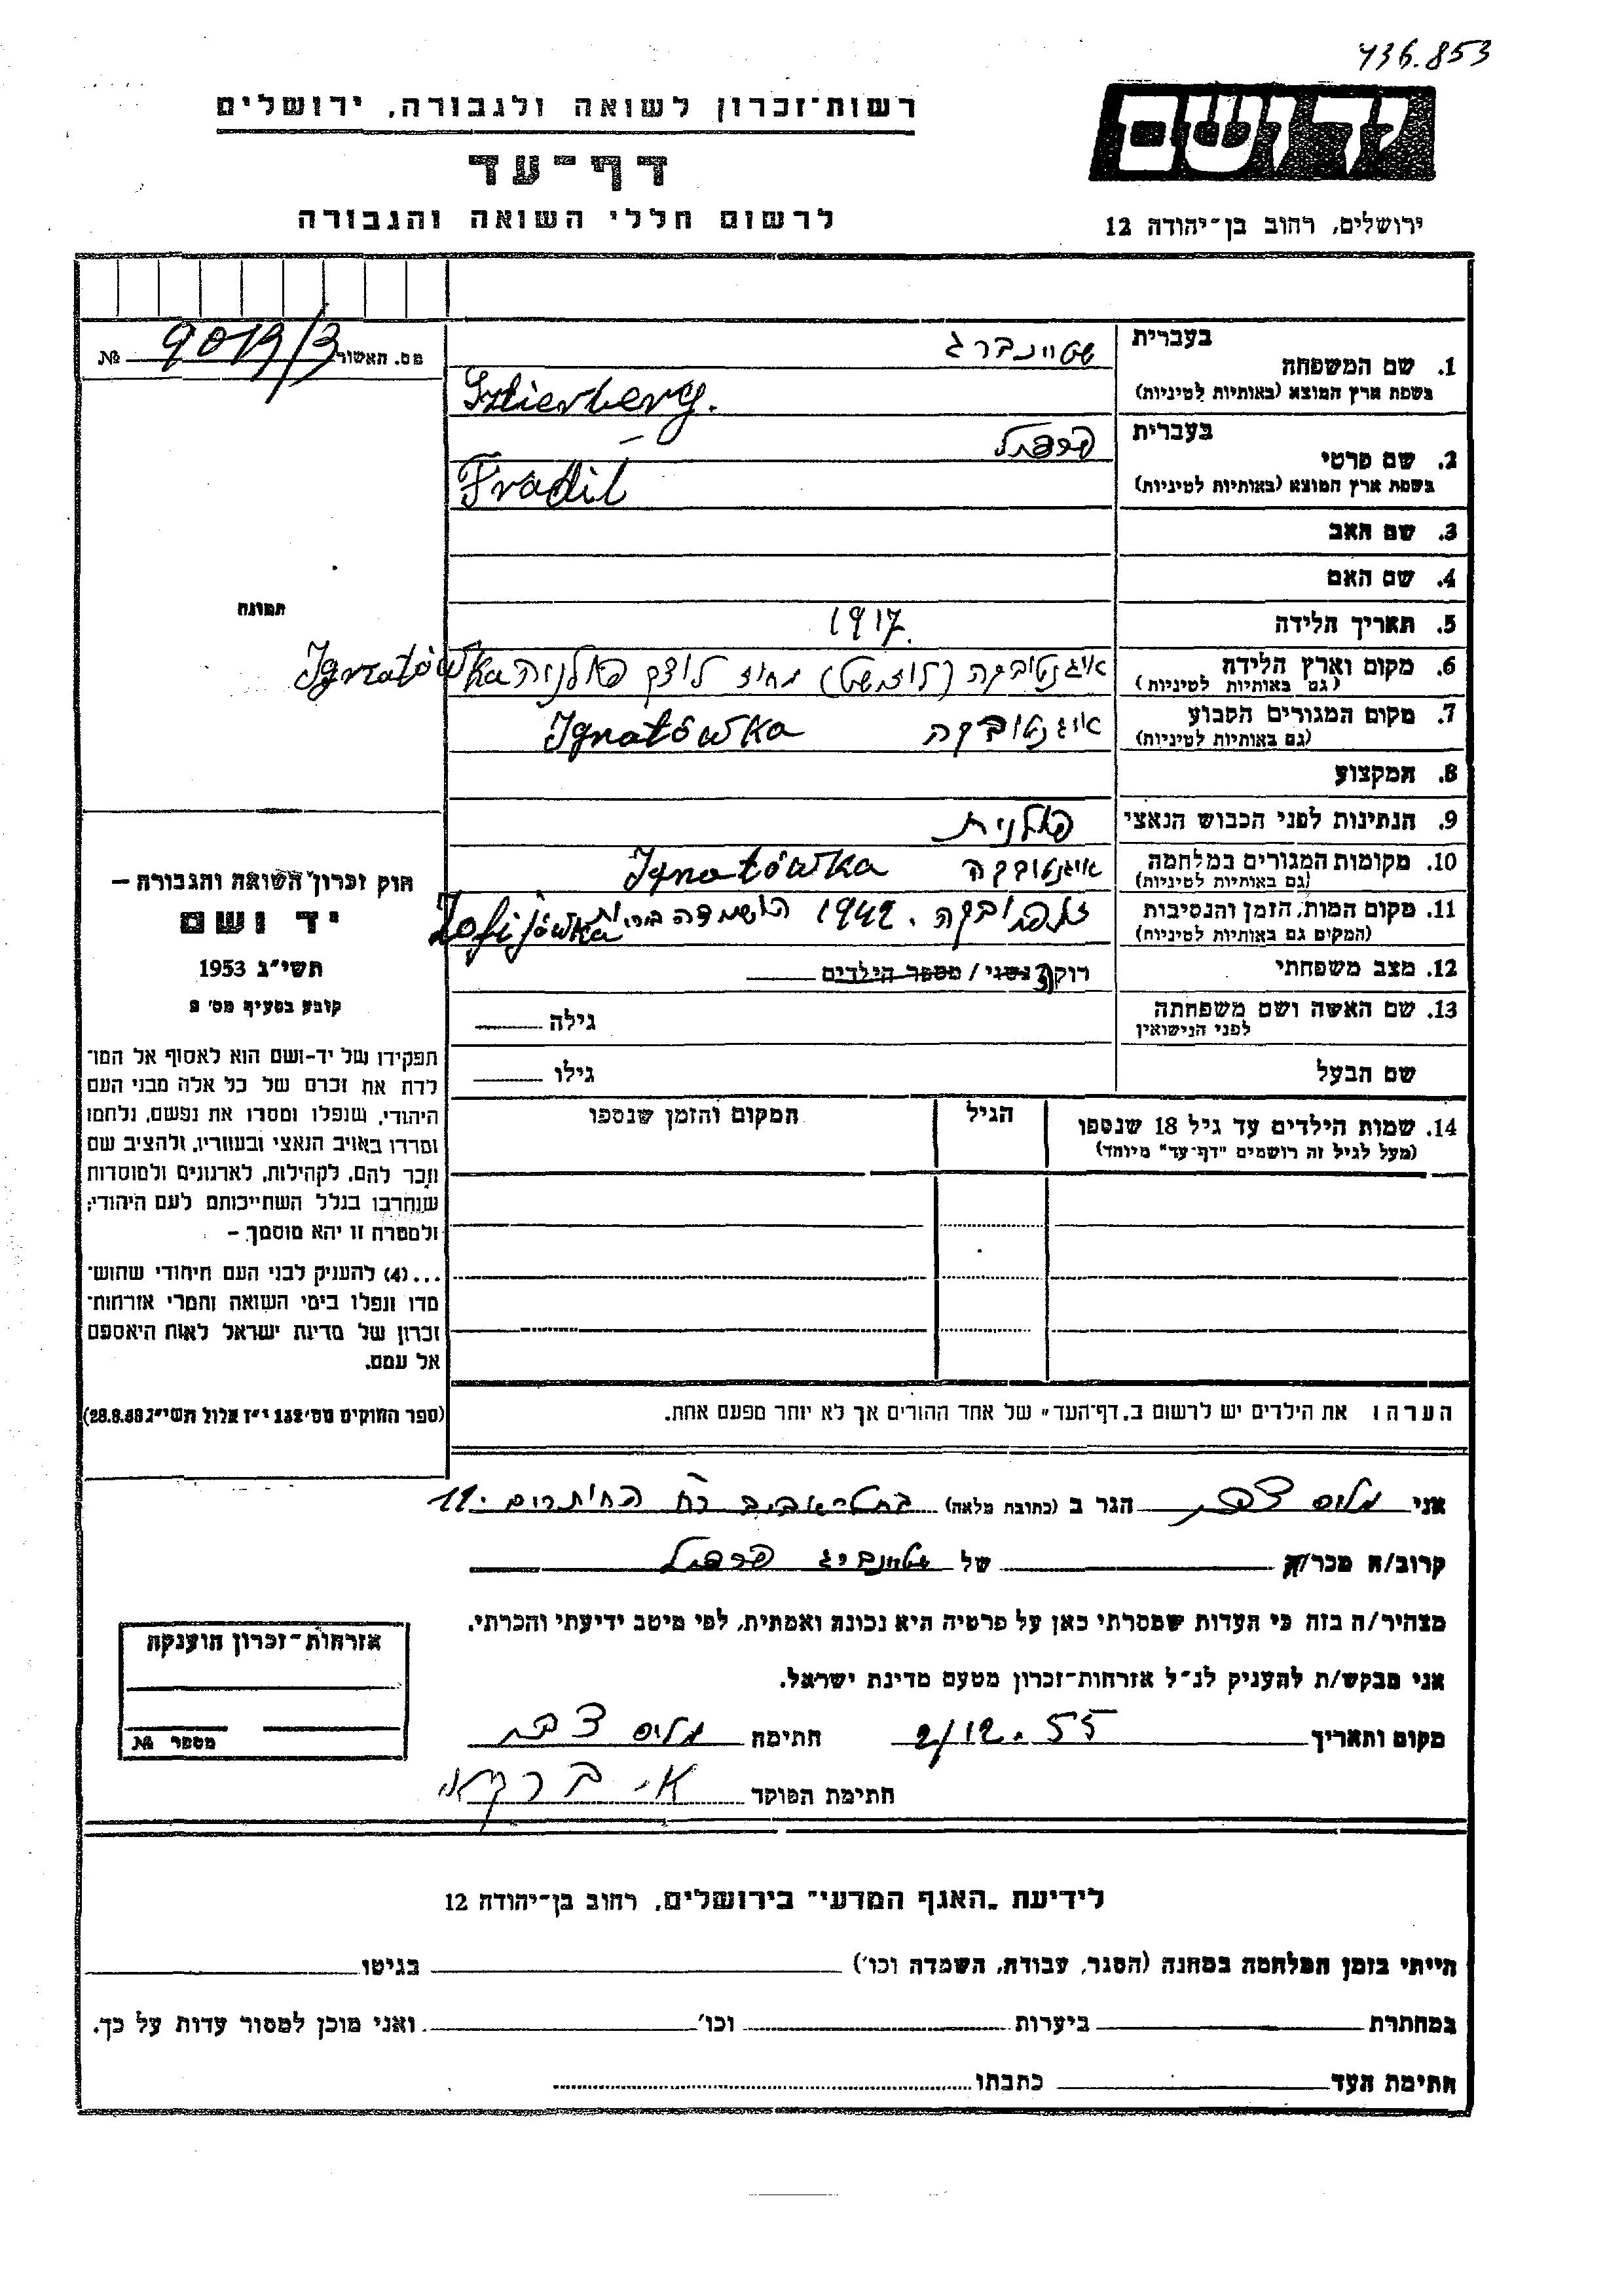 436.853
יד ושם
רשות־זכרון לשואה ולגבורה, ירושלים
דף־עד
לרשום חללי השואה והגבורה
ירושלים, רחוב בן־יהודה 12
מס. האשור 9019/3 №
בעברית
1. שם המשפחה שטיינברג
בשפת ארץ המוצא (באותיות לטיניות) Sztierberg.
בעברית
2. שם פרטי פרדיל
בשפת ארץ המוצא (באותיות לטיניות) Fradil
3. שם האב
4. שם האם
תמונה
5. תאריך הלידה 1917.
6. מקום וארץ הלידה איגנטובקה (לוזישט) מחוז לוצק פולניה Ignatówka
(גם באותיות לטיניות)
7. מקום המגורים הקבוע איגנטובקה Ignatówka
(גם באותיות לטיניות)
8. המקצוע
9. הנתינות לפני הכבוש הנאצי פולנית
10. מקומות המגורים במלחמה איגנטובקה Ignatówka
(גם באותיות לטיניות)
11. מקום המות, הזמן והנסיבות זופיובקה. 1942 הושמדה Zofijówka
(המקום גם באותיות לטיניות)
12. מצב משפחתי רוק/נשוי / מספר הילדים
13. שם האשה ושם משפחתה גילה
לפני הנישואין
שם הבעל גילו
14. שמות הילדים עד גיל 18 שנספו הגיל המקום והזמן שנספו
(מעל לגיל זה רושמים "דף־עד" מיוחד)
הערה: את הילדים יש לרשום ב„דף־העד" של אחד ההורים אך לא יותר מפעם אחת.
חוק זכרון השואה והגבורה —
יד ושם
תשי"ג 1953
קובע בסעיף מס' 2
תפקידו של יד-ושם הוא לאסוף אל המו־
לדת את זכרם של כל אלה מבני העם
היהודי, שנפלו ומסרו את נפשם, נלחמו
ומרדו באויב הנאצי ובעוזריו, ולהציב שם
וזכר להם, לקהילות, לארגונים ולמוסדות
שנחרבו בגלל השתייכותם לעם היהודי;
ולמטרה זו יהא מוסמך —
...(4) להעניק לבני העם היהודי שהוש־
מדו ונפלו בימי השואה והמרי אזרחות־
זכרון של מדינת ישראל לאות היאספם
אל עמם.
(ספר החוקים מס' 132 י"ז אלול תשי"ג 28.8.53)
אני הגר ב (כתובת מלאה) בתל־אביב רח החותרים 11.
קרוב/ה מכר/ה של שטיינברג פרדיל
מצהיר/ה בזה כי העדות שמסרתי כאן על פרטיה היא נכונה ואמתית, לפי מיטב ידיעתי והכרתי.
אני מבקש/ת להעניק לנ"ל אזרחות־זכרון מטעם מדינת ישראל.
מקום ותאריך 2/12.55 חתימה
חתימת הפוקד
אזרחות־זכרון הוענקה
מספר №
לידיעת „האגף המדעי" בירושלים, רחוב בן־יהודה 12
הייתי בזמן המלחמה במחנה (הסגר, עבודה, השמדה וכו') בגיטו
במחתרת ביערות וכו' ואני מוכן למסור עדות על כך.
חתימת העד כתבתו